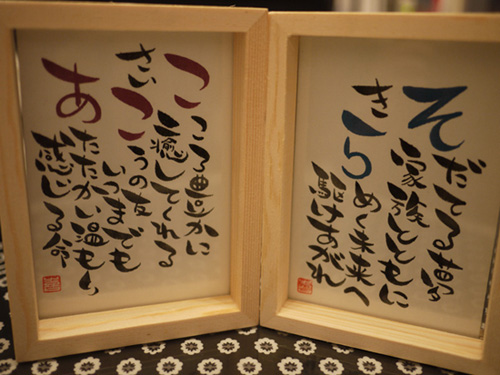 そだてる夢
家族とともに
きらめく未来へ
駆けあがれ
こころ豊かに
癒してくれる
さいこうの友
いつまでも
あたたかい温もり
感じる命